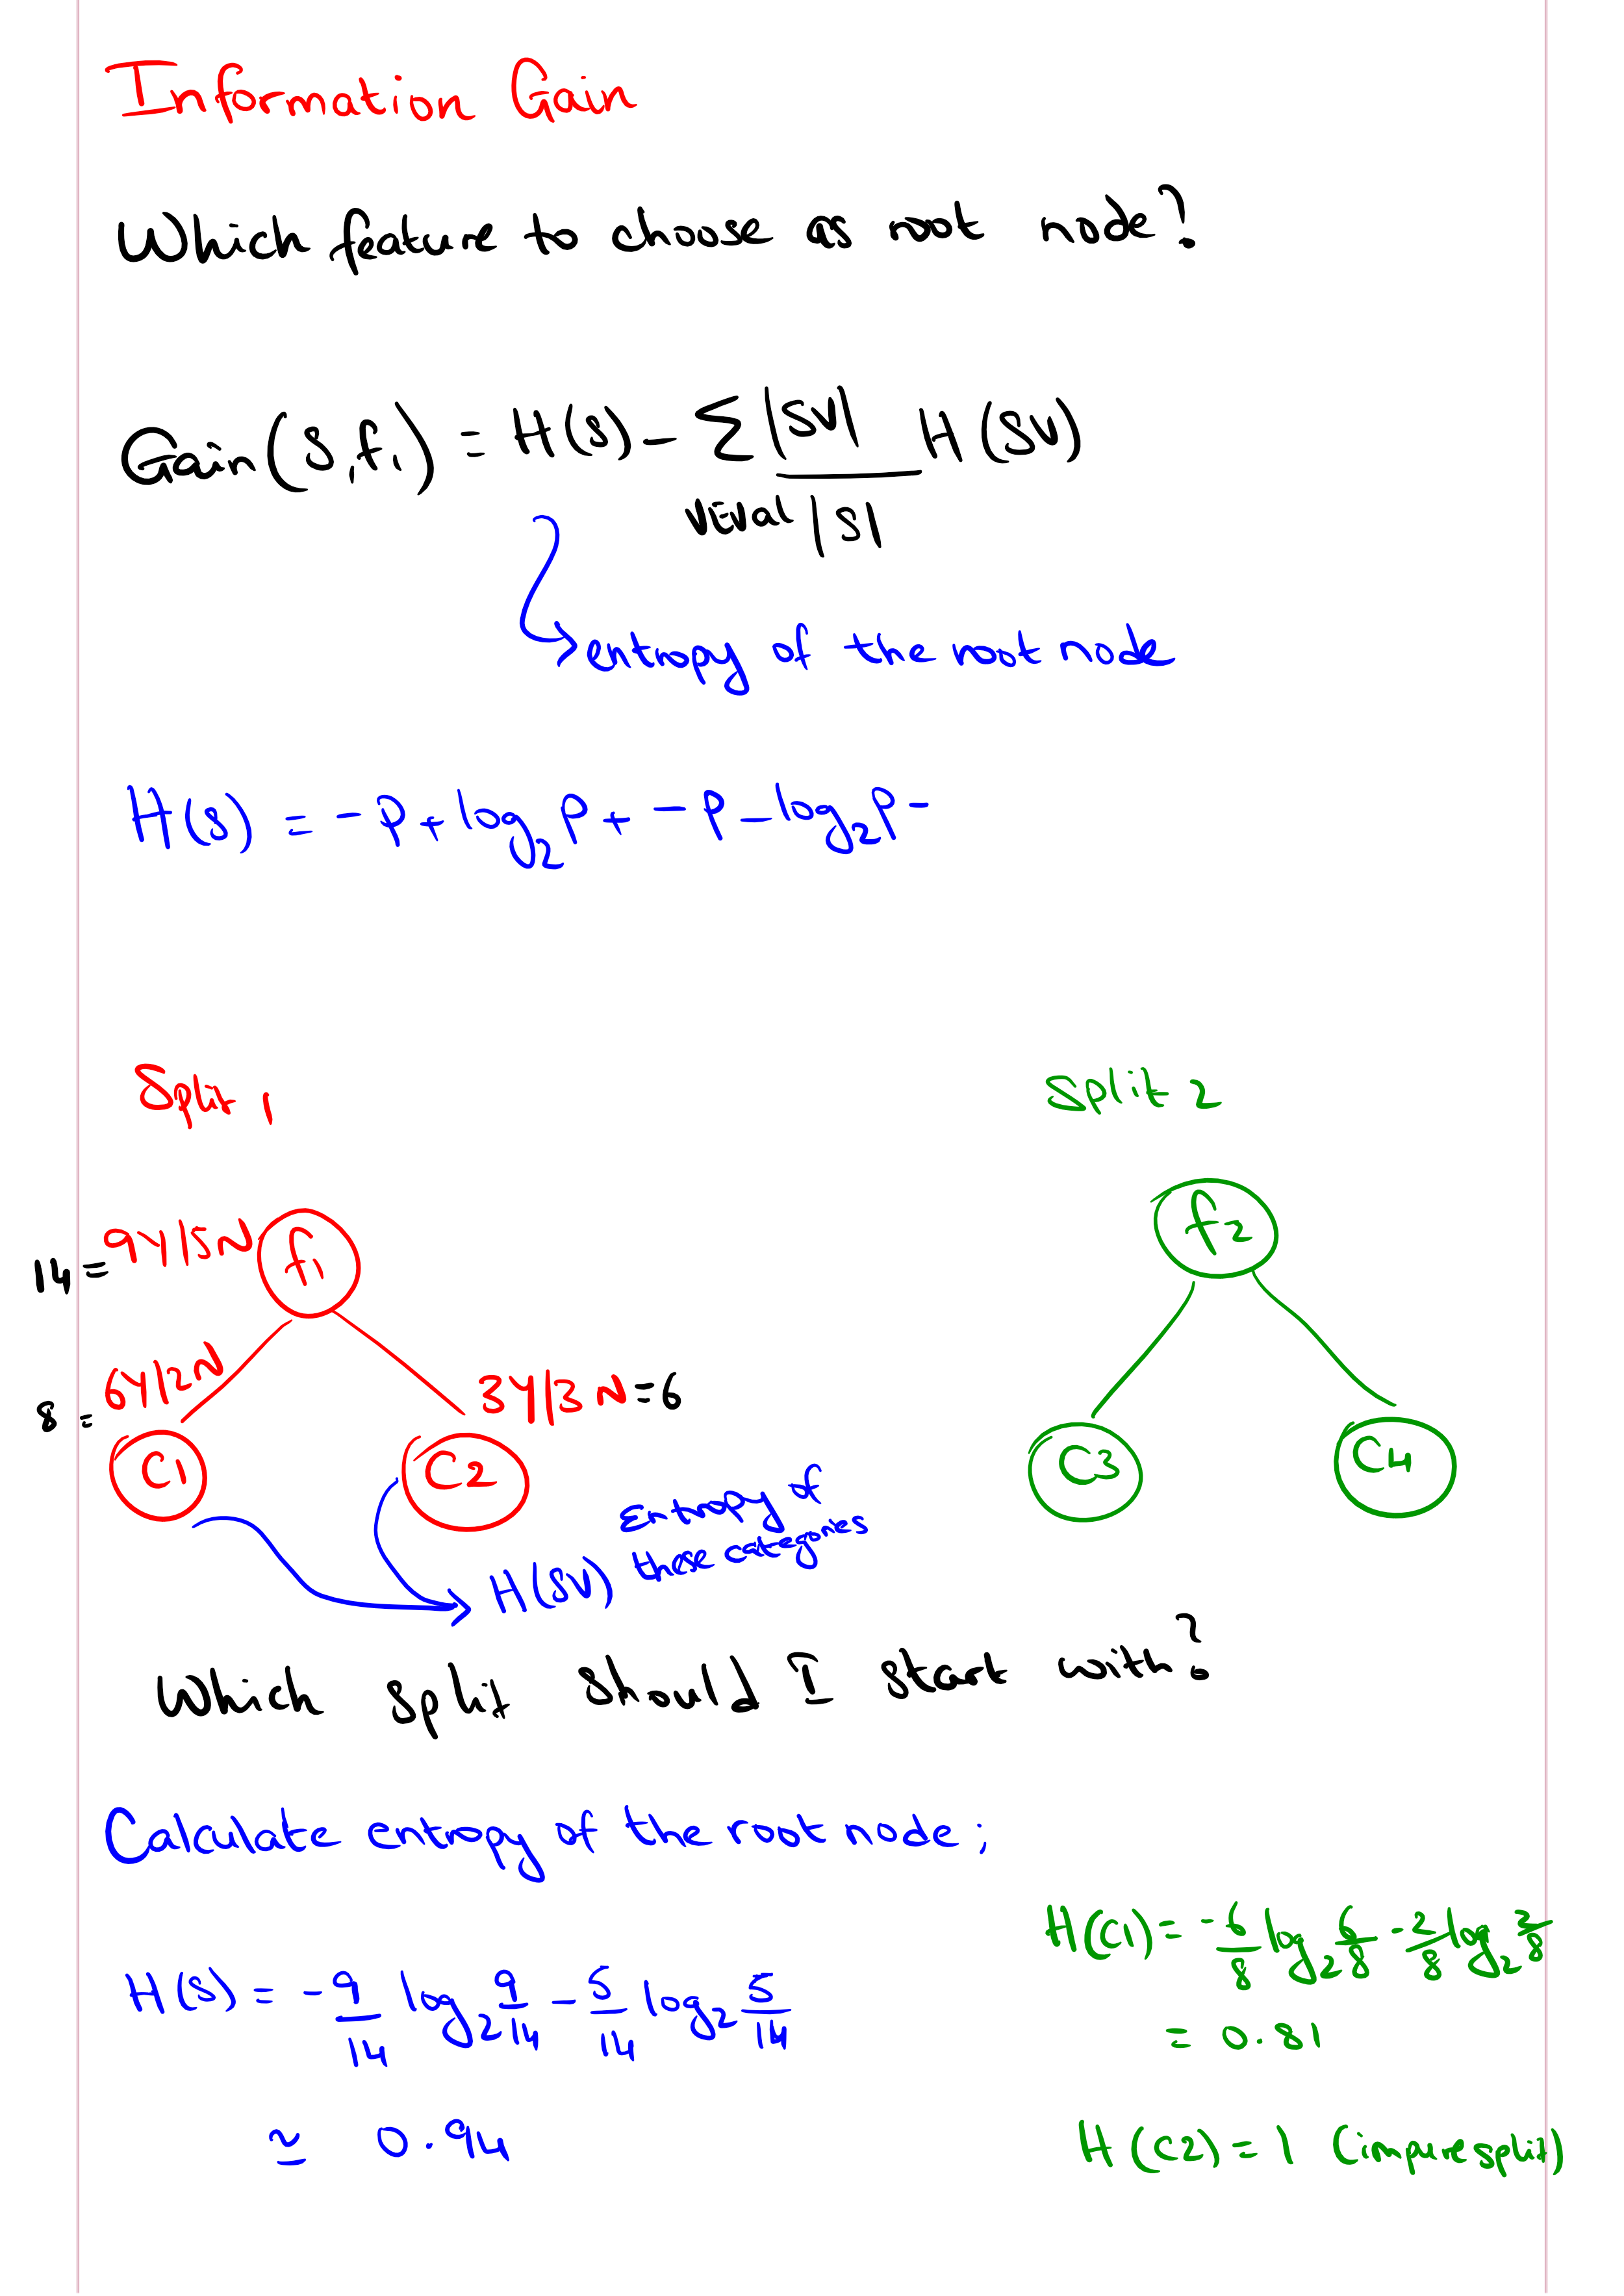 Information Gain
Which feature to choose as root node?
Gain(S,f1) = H(S) - Σ |SV| H(SV)
vϵval |S|
entropy of the root node
H(S) = -P+ log2P+ -P- log2P-
Split 1
Split 2
14 = 9Y|5N
f1
f2
8 = 6Y|2N
3Y|3N = 6
C1
C2
C3
C4
Entropy of
H(SV) these categories
Which split should I start with?
Calculate entropy of the root node;
H(S) = -9/14 log2 9/14 - 5/14 log2 5/14
≃ 0.94
H(C1) = -6/8 log2 6/8 - 2/8 log2 2/8
= 0.81
H(C2) = 1 (impure split)